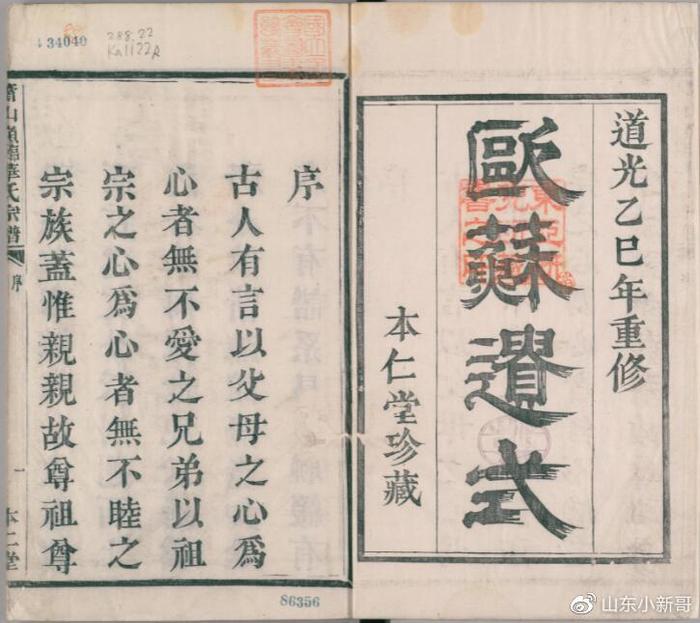 道光乙巳年重修
歐蘇遺式
本仁堂珍藏
序
古人有言以父母之心為
心者無不愛之兄弟以祖
宗之心為心者無不睦之
宗族蓋惟親親故尊祖尊
氏宗譜
序
一
本仁堂
34040
288.22
Ka1122A
86356
@山东小新哥